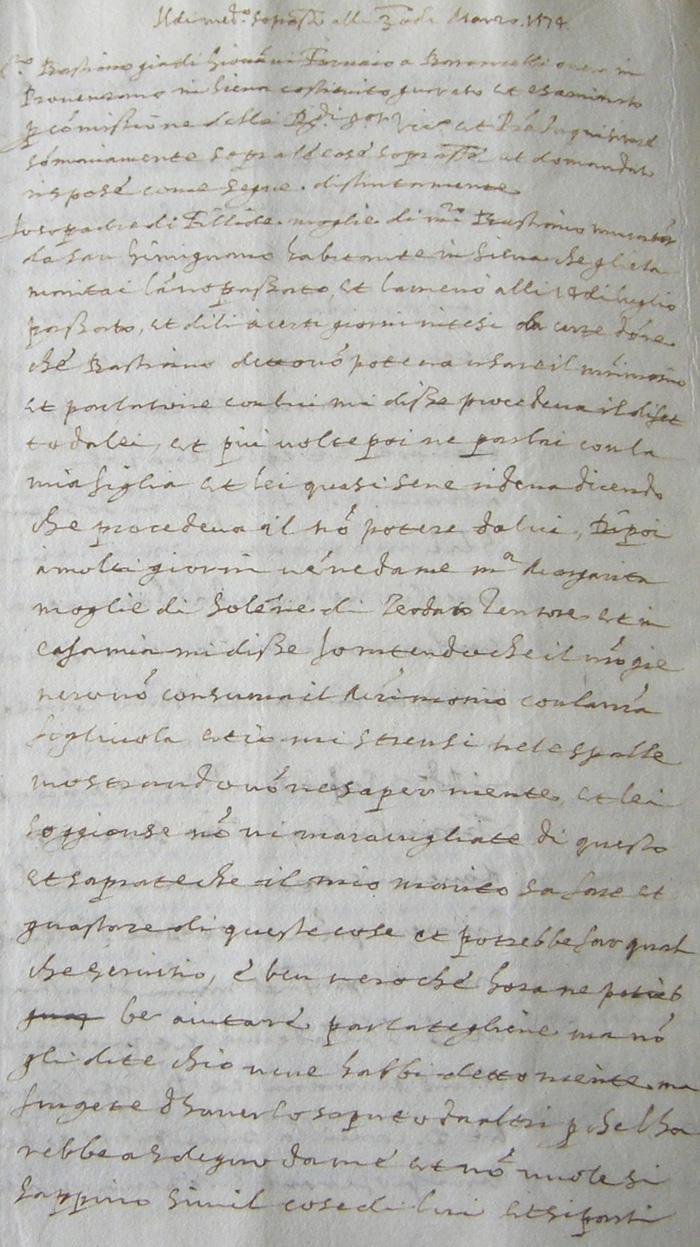 Il dì med.º soprasc.º alli 3 di Marzo 1574
Bastiano già di Giovanni Fornaio a in
Provenzano in Siena costituito giurato et esaminato
p cõmissione della et
sõmariamente sopra le cose soprascᵉ et domandato
rispose come segue distintamente
Io so padre di Fillide moglie di mʳᵒ Bastiano
da San Gimignano habitante in Siena che gliela
maritai lãno passato, et la menò alli di luglio
passato, et di lì à certi giorni intesi da certe dõne
ché Bastiano detto nõ poteva usare il mrimonio
et parlatone con lui mi disse procedeva il difet
to da lei, et più volte poi ne parlai con la
mia figlia et lei quasi se ne rideva dicendo
che procedeva il nõ potere da lui, Di poi
à molti giorni vẽne da me mª Margarita
moglie di Solẽne di Teodoro Tentore et in
casa mia mi disse Io intendo che il vrõ gie
nero nõ consuma il Mrimonio con la vrã
figliuola et io mi strensi nele spalle
mostrando nõ ne saper niente, et lei
soggionse nõ vi maravigliate di questo
et sapiate che il mio marito sa fare et
guastare di queste cose et potrebbe farvi qual
che servitio, è ben vero ché hora ne potreb
be aiutare parlategliene ma nõ
gli dite chio ve ne habbi detto niente ma
fingete d'haverlo saputo da altri p che lha
rebbe a sdegno da me et nõ vuole si
sappino simil cose di lui et si partì